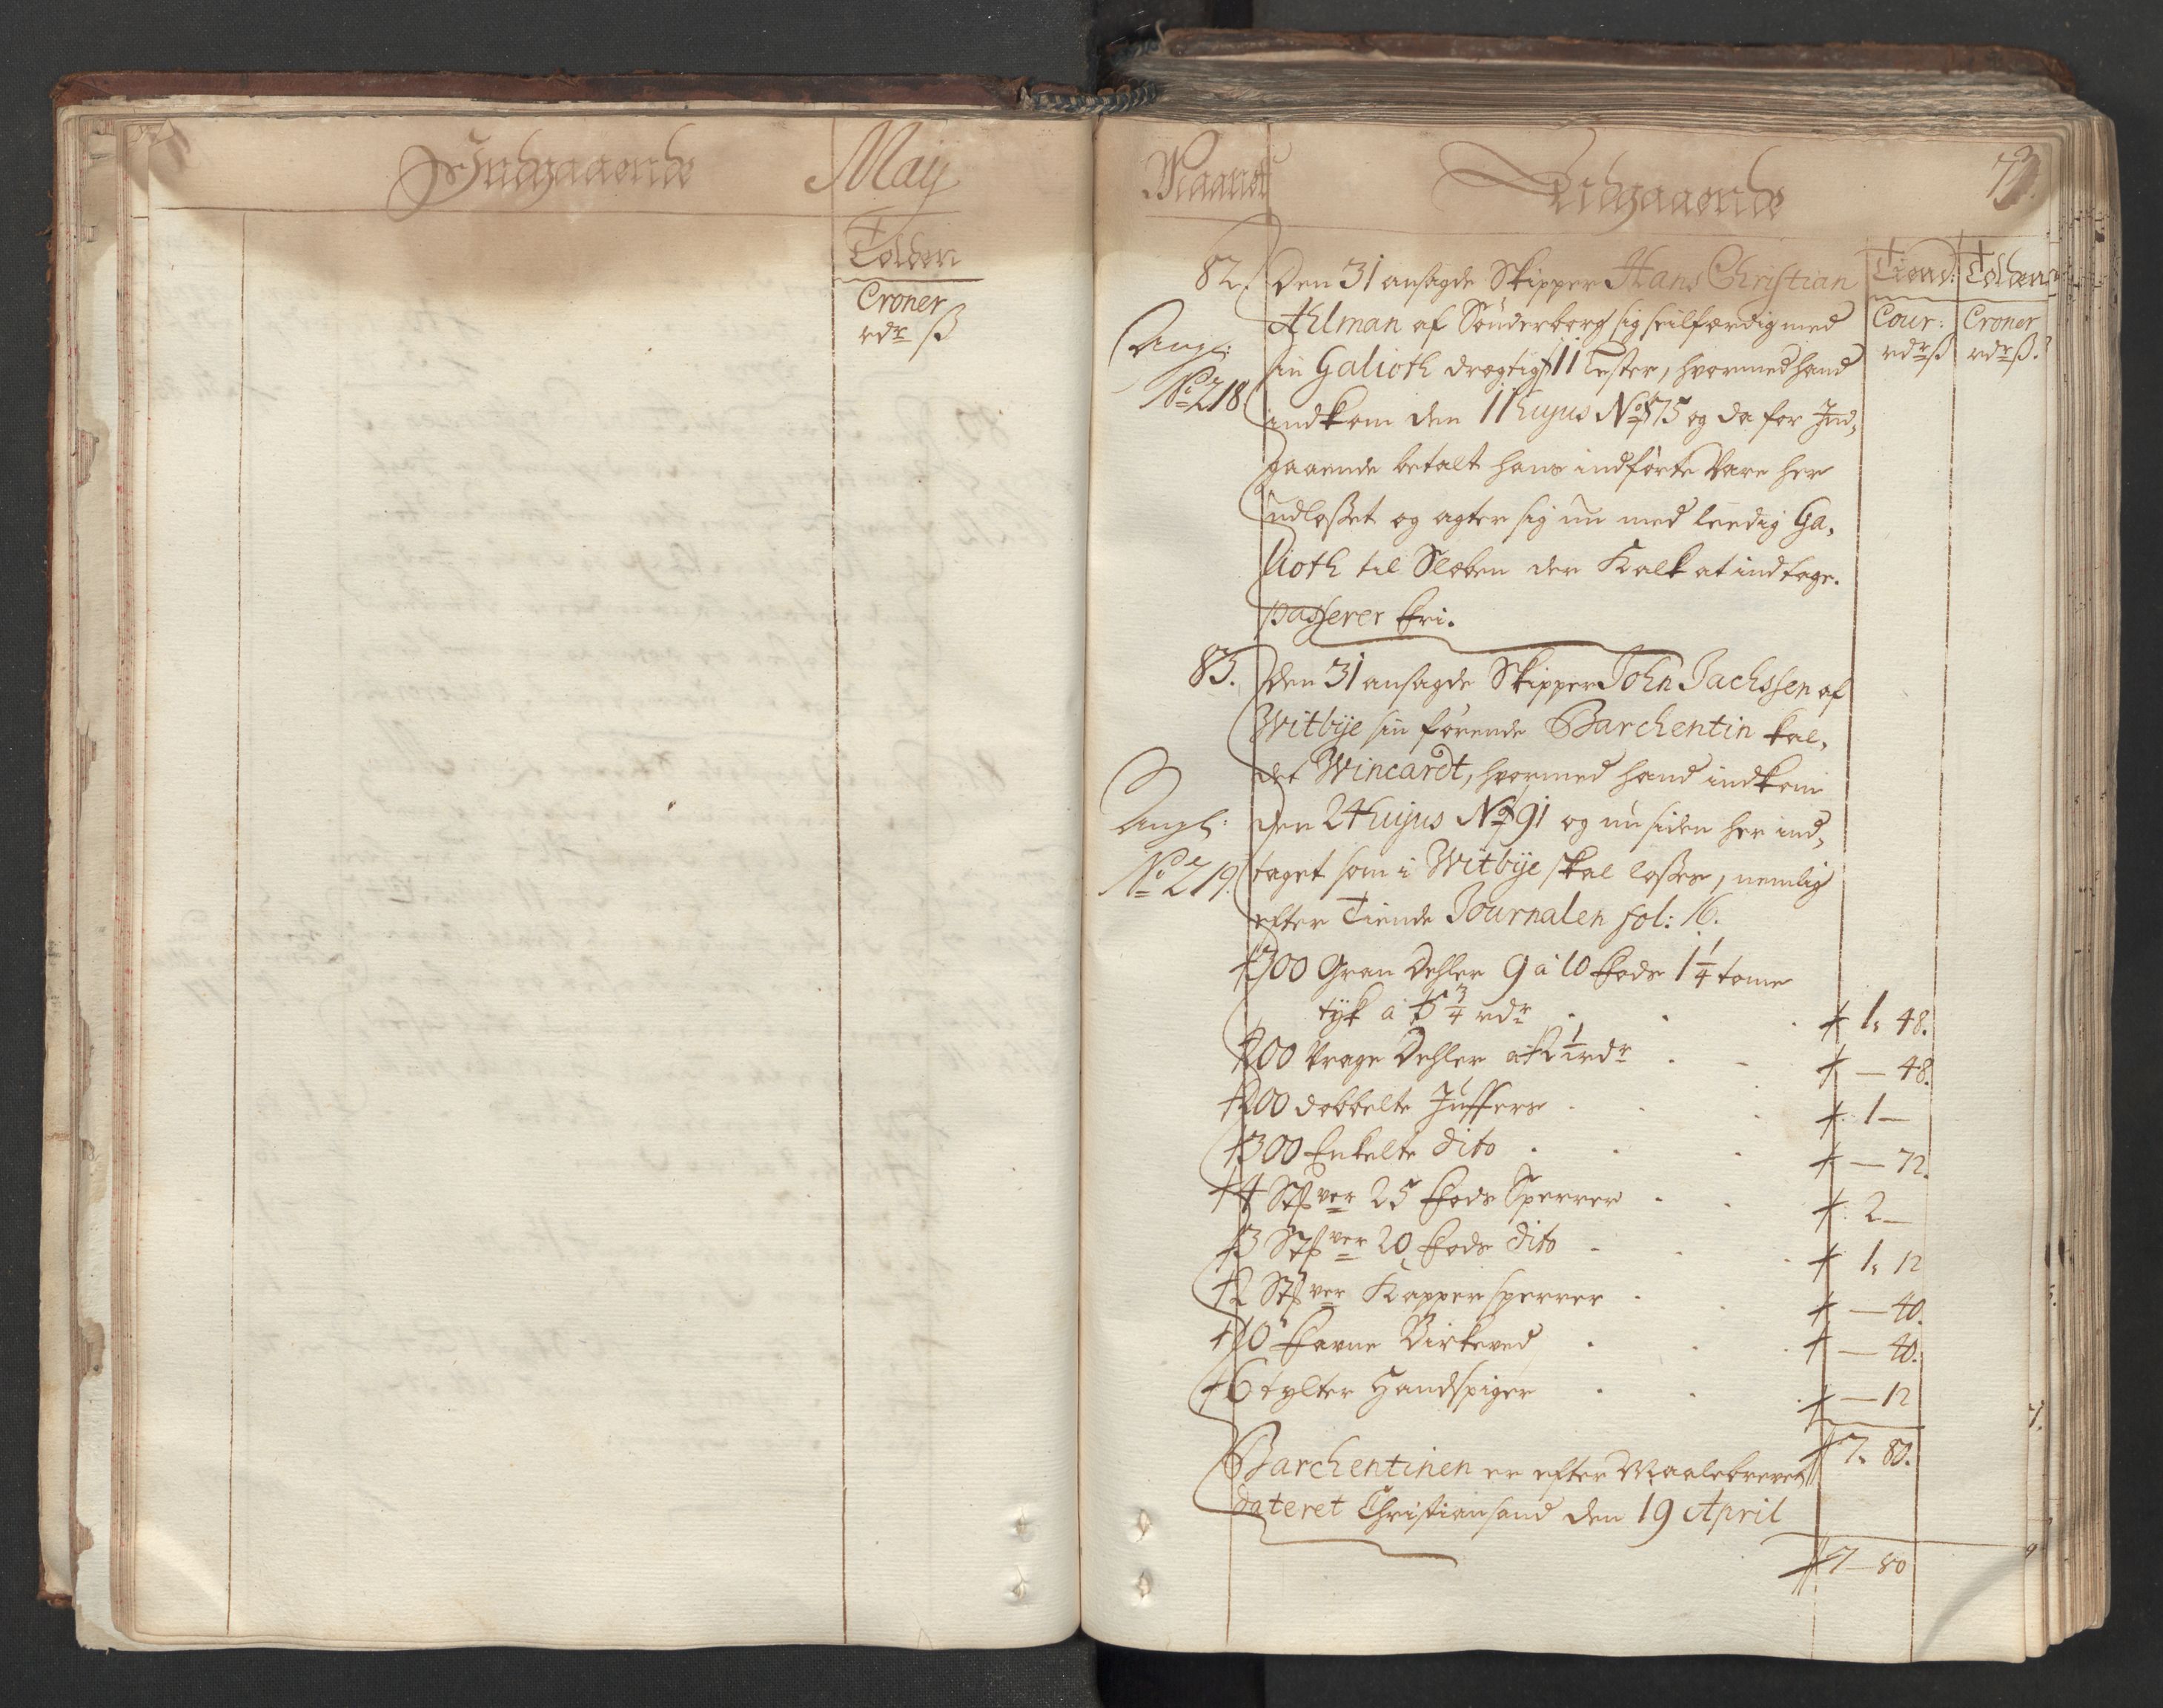 Indgaaende
Maij
Tolden
Croner
rdr ß
Maanet
Udgaaende
73.
Tiend:
Tolden
Cour:
Croner
rdr ß
rdr ß.
82. Den 31 ansagde Skipper Hans Christian
Ahlman af Sønderborg sig seilfærdig med
Angl:
No 218
sin Galioth drægtig 11 Lester, hvormed hand
indkom den 11 hujus No 75 og da for Ind-
gaaende betalt hans indførte Vare her
udlosset og agter sig nu med leedig Ga-
lioth til Slæben der Kalk at indtage.
passerer fri.
83. Den 31 ansagde Skipper John Jachssen af
Witbije sin førende Barchentin kal-
det Wincardt, hvormed hand indkom
Angl:
No 219.
den 24 hujus No 91 og nu siden her ind-
taget som i Witbije skal losses, nemlig
efter Tiende Journalen fol: 16.
300 Gran Dehler 9 a 10 Fods 1 1/4 tomme
tyk a 5 3/4 rdr . . . 1, 48.
200 Vrage Dehler a 2 1/2 rdr . - — 48.
200 dobbelte Juffers . . . 1 —
300 Enkelte dito . . . — 72.
4 St ver 25 Fods Sperrer . . 2 —
3 St ver 20 Fods dito . . . 1, 12
2 St ver Kappersperrer . . — 40.
10 Favne Birkeved . . . — 40.
6 tylter Handspiger . . . — 12
7. 80.
Barchentinen er efter Maalebrevet
dateret Christiansand den 19 April
7 — 80